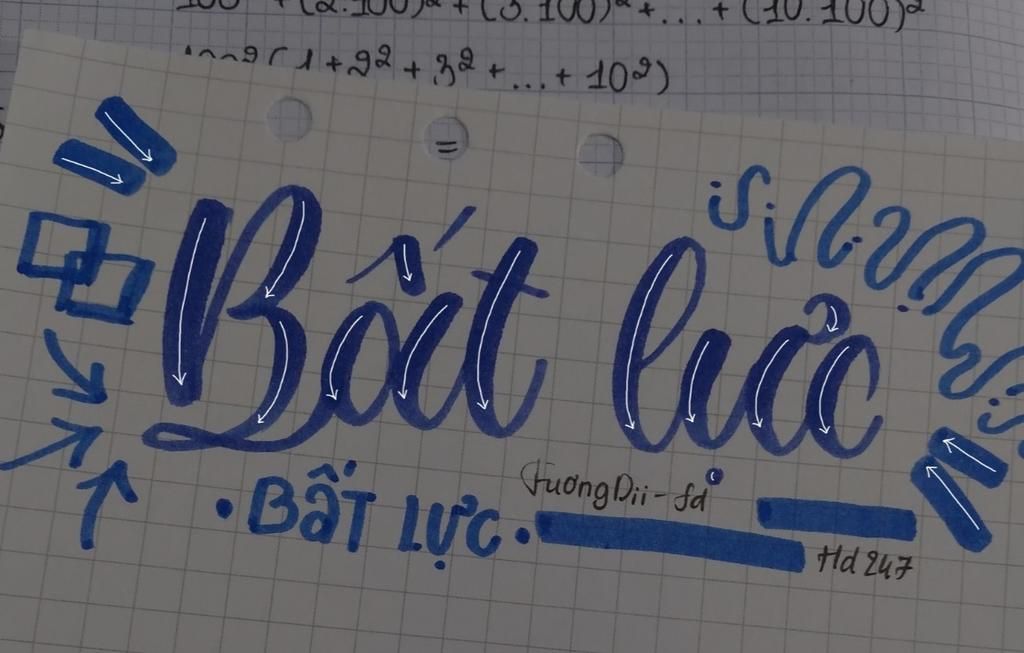 100² + (2.100)² + (3.100)² + ... + (10.100)²
100²(1 + 2² + 3² + ... + 10²)
=
Bất lực
• BẤT LỰC •
Hd 247